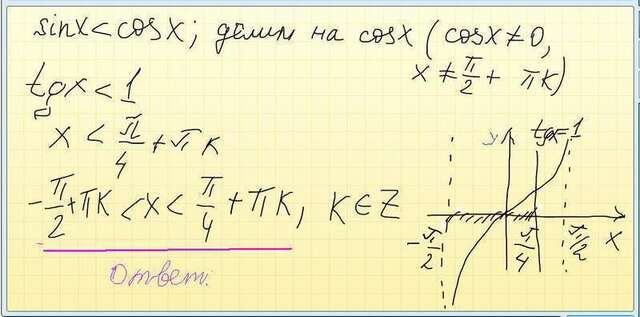 sinx < cosx; делим на cosx (cosx ≠ 0,
x ≠ π/2 + πK)
tgx < 1
x < π/4 + πK
-π/2 + πK < x < π/4 + πK, K ∈ Z
Ответ:
y
tgx=1
-π/2
π/4
π/2
x